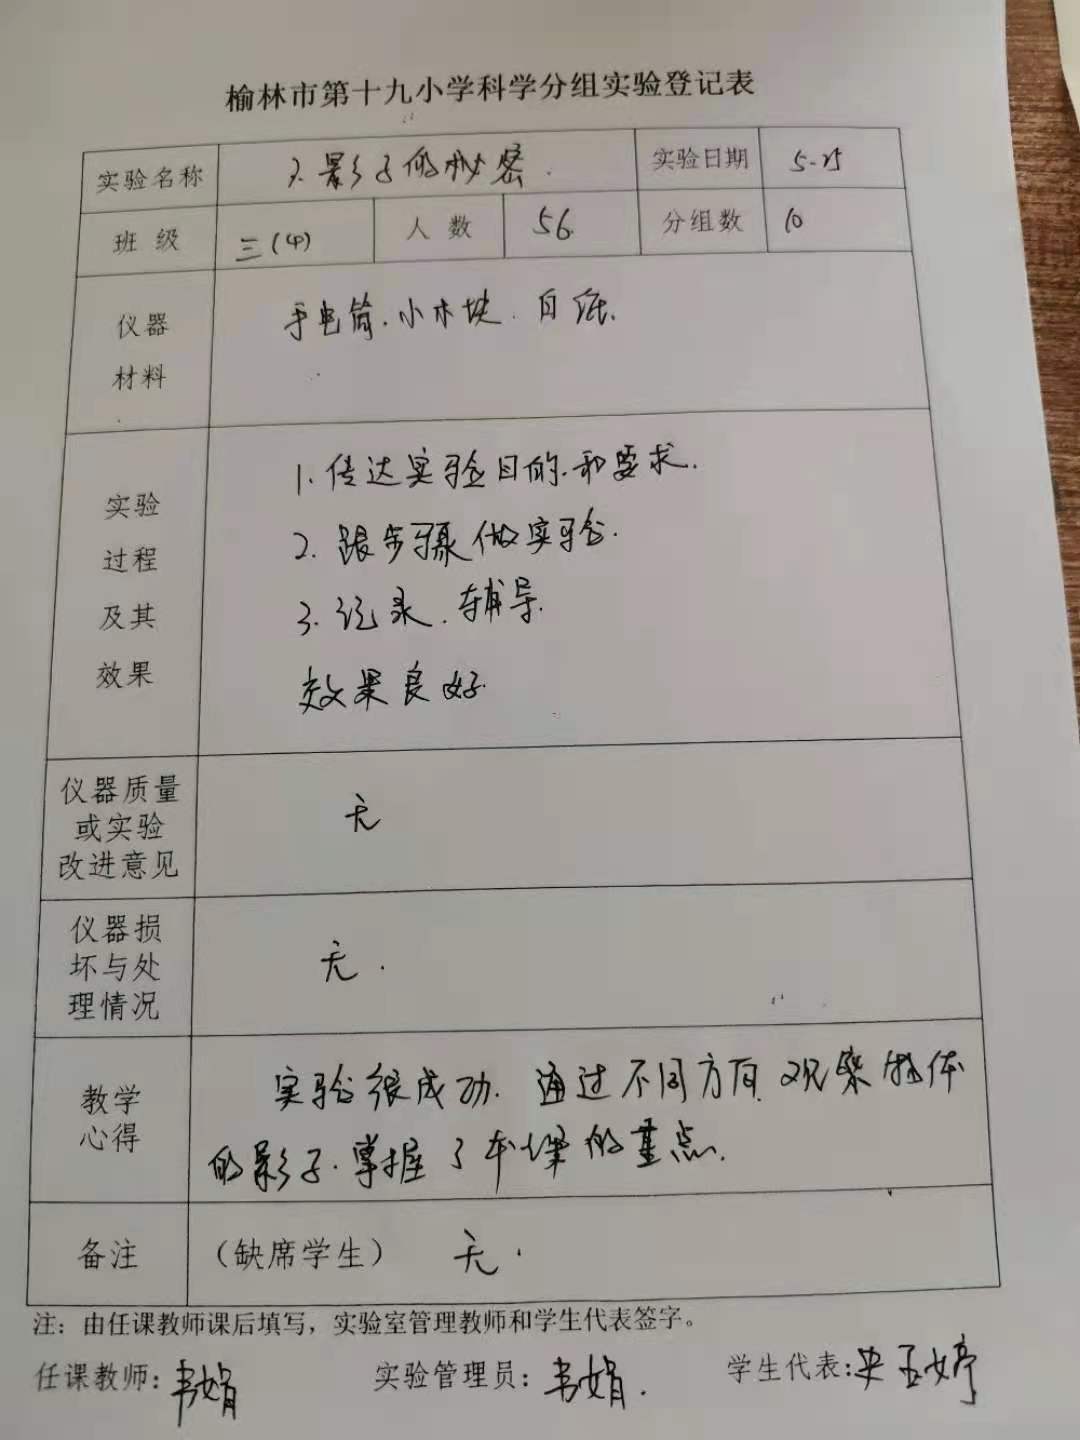 榆林市第十九小学科学分组实验登记表
实验名称 7.影子的秘密. 实验日期 5-25
班 级 三(4) 人 数 56. 分组数 10
仪器 手电筒.小木块.白纸.
材料
实验 1.传达实验目的.和要求.
过程 2.跟步骤做实验.
及其 3.记录.辅导.
效果 效果良好.
仪器质量
或实验 无
改进意见
仪器损
坏与处 无.
理情况
教学 实验很成功.通过不同方向观察物体
心得 的影子.掌握了本课的重点.
备注 (缺席学生) 无.
注：由任课教师课后填写，实验室管理教师和学生代表签字。
任课教师:韦娟 实验管理员:韦娟. 学生代表: